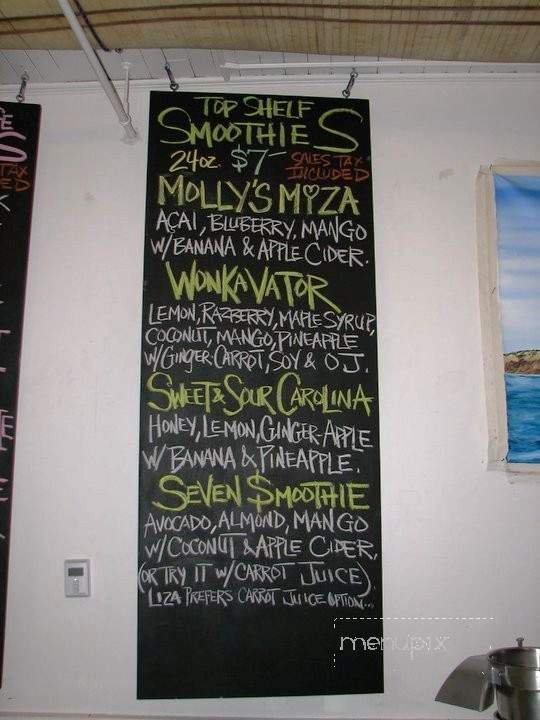 TOP SHELF
SMOOTHIES
24oz. $7- SALES TAX INCLUDED
MOLLY'S MIZA
AÇAI, BLUBERRY, MANGO
W/BANANA & APPLE CIDER.
WONKAVATOR
LEMON, RAZBERRY, MAPLE SYRUP,
COCONUT, MANGO, PINEAPPLE
W/GINGER-CARROT, SOY & OJ.
SWEET & SOUR CAROLINA
HONEY, LEMON, GINGER-APPLE
W/ BANANA & PINEAPPLE.
SEVEN $MOOTHIE
AVOCADO, ALMOND, MANGO
W/COCONUT & APPLE CIDER,
(OR TRY IT W/CARROT JUICE)
LIZA PREFERS CARROT JUICE OPTION...
menupix